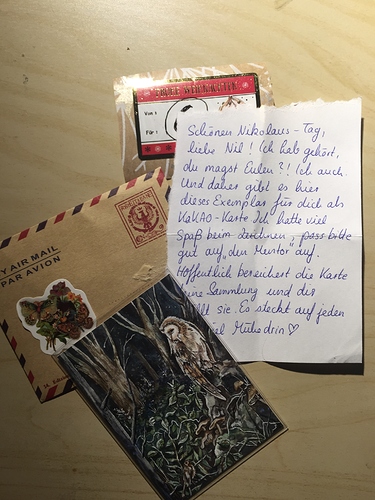 FROHE WEIHNACHTEN
Von:
Für:
Schönen Nikolaus-Tag,
liebe Nil! Ich hab gehört,
du magst Eulen?! Ich auch.
Und daher gibt es hier
dieses Exemplar für dich als
KaKAO-Karte. Ich hatte viel
Spaß beim Zeichnen, pass bitte
gut auf „den Mentor" auf.
Hoffentlich bereichert die Karte
Sammlung und dir
sie. Es steckt auf jeden
viel Mühe drin ♡
Y AIR MAIL
PAR AVION